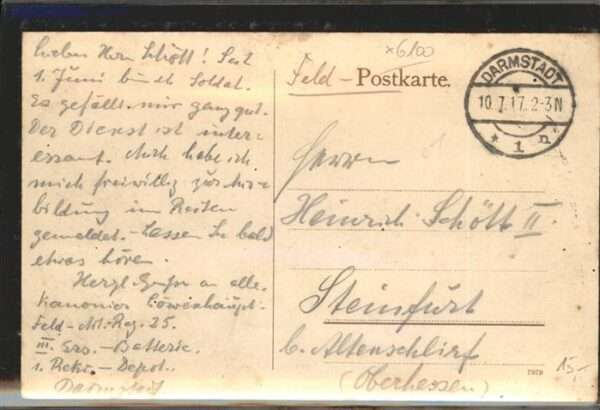 Lieber Herr Schött! Seit
1. Juni bin ich Soldat.
Es gefällt mir ganz gut.
Der Dienst ist inter-
essant. Auch habe ich
mich freiwillig zur Aus-
bildung im Reiten
gemeldet. - Lassen Sie bald
etwas hören.
Herzl. Grüße an alle.
Kanonier Löwenhaupt.
Feld-Art.-Reg. 25.
III. Ers.-Batterie.
1. Rekr.-Depot.
Darmstadt
×6100
Feld-Postkarte.
DARMSTADT
10.7.17.2-3N
* 1 n
Herrn
Heinrich Schött II.
Steinfurt
b. Altenschlirf
(Oberhessen)
15,-